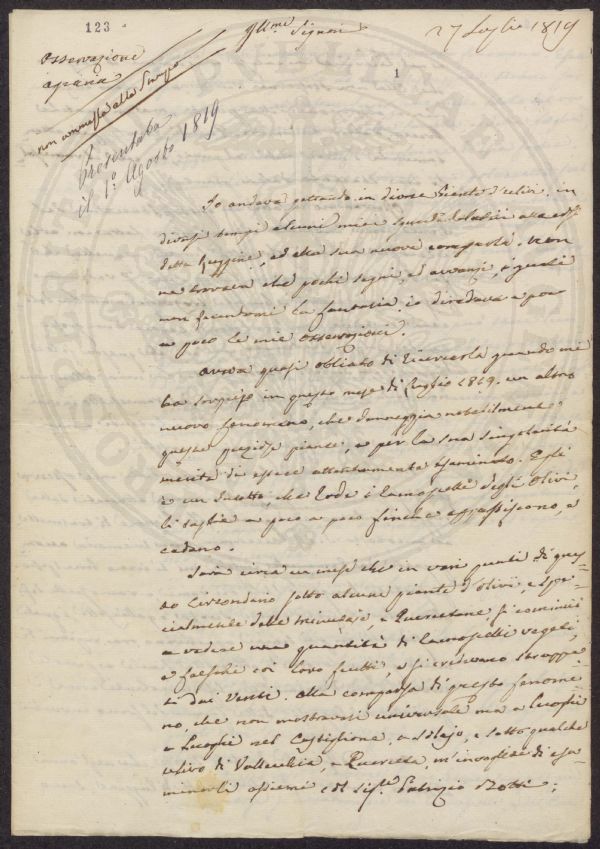 123
Ill.mi Signori
27 Luglio 1819
Osservazione
agraria
non ammessa alla Stampa
Presentata
il 1.o Agosto 1819
1
Io andava gettando in diverse Piante d'ulivi, in
diversi tempi alcuni miei sguardi
detta Ruggine, ed alla sua nuova comparsa. Non
ne trovava che pochi segni, ed avanzi, i quali
non fecondarmi la fantasia, io diradava a poco
a poco le mie osservazioni.
Aveva quasi obliato di ricercarla quando mi
ha sorpreso in questo mese di Luglio 1819. un altro
nuovo fenomeno, che danneggia notabilmente
queste preziose piante, e per la sua singolarità
merita di essere attentamente esaminato. Egli
è un Insetto, che rode i ramoscelli degli Olivi,
li taglia a poco a poco finchè appassiscono, e
cadano.
Sarà circa un mese che in vari punti di ques=
to Circondario sotto alcune piante d'Olivi, e spe=
cialmente delle, e Quercetane, si cominciò
a vedere una quantità di ramoscelli vegeti,
e freschi coi loro frutti, e si credevano strappa=
ti dai venti. Alla comparsa di questo fenome=
no, che non mostravasi universale ma a luoghi
a luoghi nel Castiglione, a Solajo, e sotto qualche
ulivo di Vallecchia, e Querceta, m'invogliai di esa=
minarli assieme col Sig.re Fabrizio Botti;